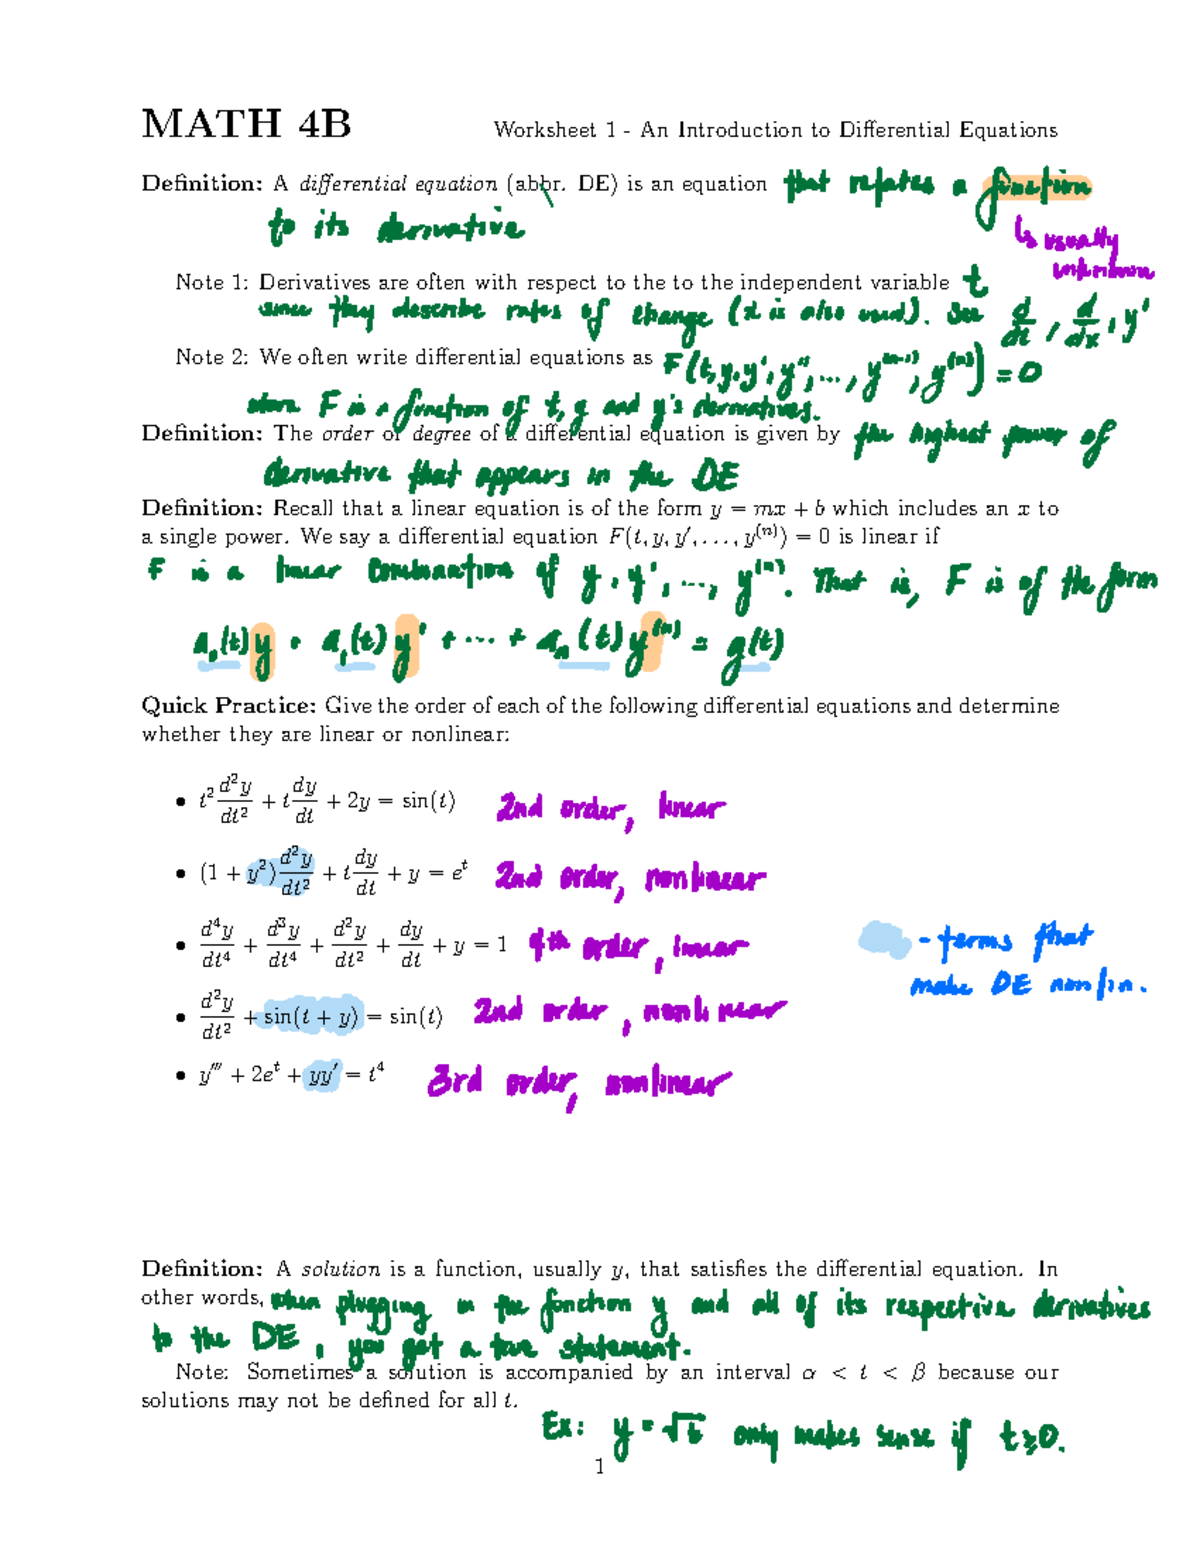 MATH 4B Worksheet 1 - An Introduction to Differential Equations
Definition: A differential equation (abbr. DE) is an equation that relates a function
to its derivative
↳ usually
unknown
Note 1: Derivatives are often with respect to the to the independent variable t
since they describe rates of change (x is also used). See d/dt, d/dx, y'
Note 2: We often write differential equations as F(t, y, y', y'', ..., y^(n-1), y^(n)) = 0
where F is a function of t, y and y's derivatives.
Definition: The order or degree of a differential equation is given by the highest power of
derivative that appears in the DE
Definition: Recall that a linear equation is of the form y = mx + b which includes an x to
a single power. We say a differential equation F(t, y, y', ..., y^(n)) = 0 is linear if
F is a linear combination of y, y', ..., y^(n). That is, F is of the form
a₀(t)y + a₁(t)y' + ... + aₙ(t)y^(n) = g(t)
Quick Practice: Give the order of each of the following differential equations and determine
whether they are linear or nonlinear:
• t² d²y/dt² + t dy/dt + 2y = sin(t) 2nd order, linear
• (1 + y²) d²y/dt² + t dy/dt + y = e^t 2nd order, nonlinear
• d⁴y/dt⁴ + d³y/dt⁴ + d²y/dt² + dy/dt + y = 1 4th order, linear
- terms that
make DE nonlin.
• d²y/dt² + sin(t + y) = sin(t) 2nd order, nonlinear
• y''' + 2e^t + yy' = t⁴ 3rd order, nonlinear
Definition: A solution is a function, usually y, that satisfies the differential equation. In
other words, when plugging in the function y and all of its respective derivatives
to the DE, you get a true statement.
Note: Sometimes a solution is accompanied by an interval α < t < β because our
solutions may not be defined for all t.
Ex: y = √t only makes sense if t ≥ 0.
1